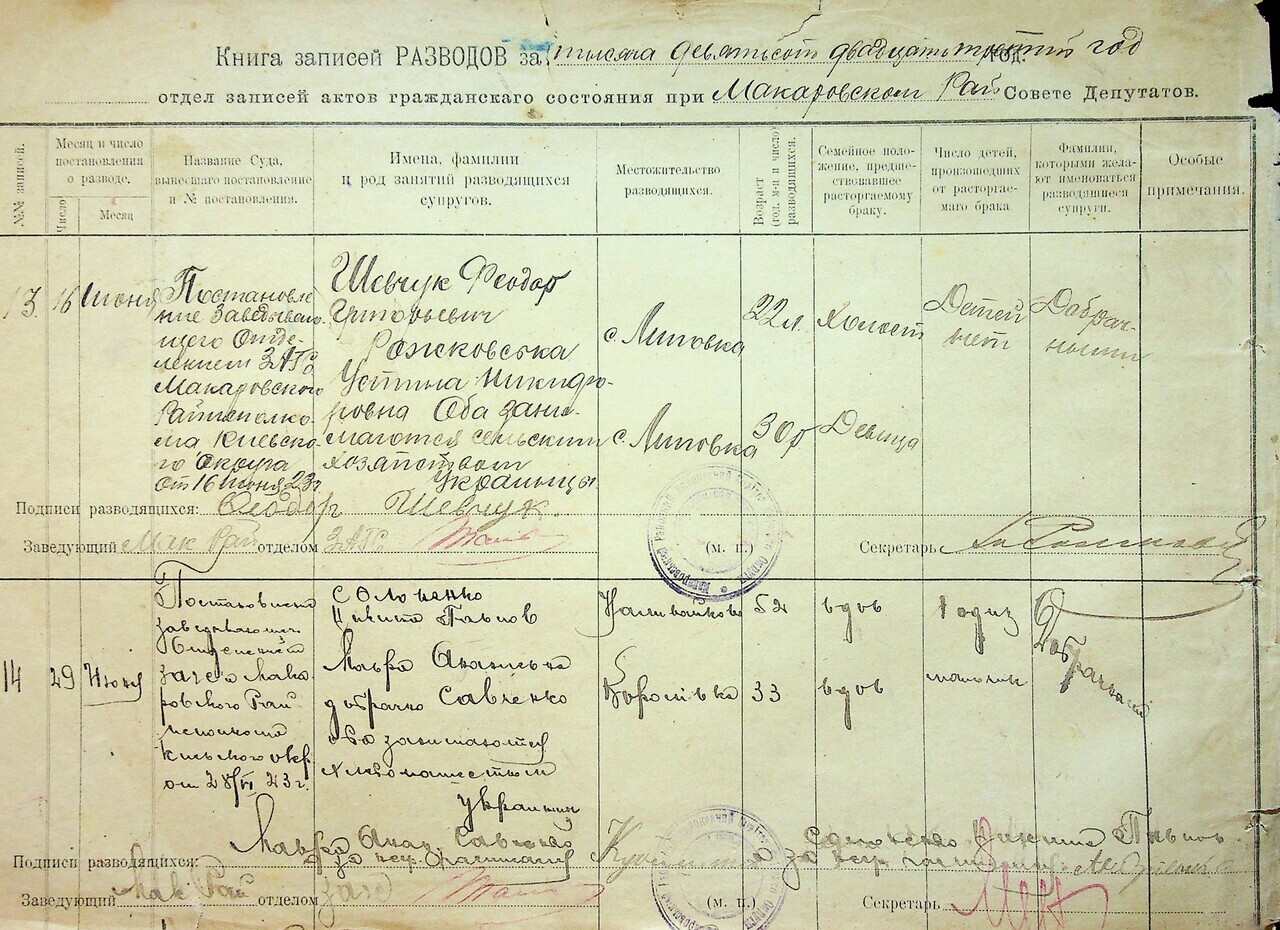 Книга записей РАЗВОДОВ за тысяча девятисот двадцать третий год год.
отдел записей актов гражданскаго состояния при Макаровском Рай Совете Депутатов.
№№ записей.
Месяц и число постановления о разводе.
Число
Месяц
Название Суда, вынесшаго постановление и № постановления.
Имена, фамилии и род занятий разводящихся супругов.
Местожительство разводящихся.
Возраст (год, м-ц и число) разводящихся.
Семейное положение, предшествовавшее расторгаемому браку.
Число детей, произошедших от расторгаемаго брака
Фамилии, которыми желают именоваться разводящиеся супруги.
Особые примечания.
13.
16
Июня
Постановле
ние Заведываю
щего Отде
лением ЗАГС
Макаровского
Райисполко
ма Киевско
го Округа
от 16 Июня 23 г.
Шевчук Феодор
Григорьевич
Рожковська
Устина Никифо-
ровна Оба зани-
маются сельским
хозяйством
Украинцы
с. Липовка
с. Липовка
22 л.
30 г
Холост
Девица
Детей
нет
Добрач-
ными
Подписи разводящихся: Феодор Шевчук.
Заведующий Мак Рай отделом ЗАГС
(м. п.)
Секретарь
14
29
Июня
Постановление
заведывающего
Отделением
загса Мака
ровского Рай
исполкома
Киевского окр
от 28/VI 23 г.
Солоненко
Никита Павлов
Мавра Акакиевна
добрачно Савченко
оба занимаются
хлебопашеством
украинцы
Наливайковка
Королівка
52
33
вдов
вдов
1 один
мальчик
Добрачными
Подписи разводящихся: Мавра Акак. Савченко
за негр.
Никита Павлов
за негр.
Заведующий Мак Рай отделом загс
(м. п.)
Секретарь